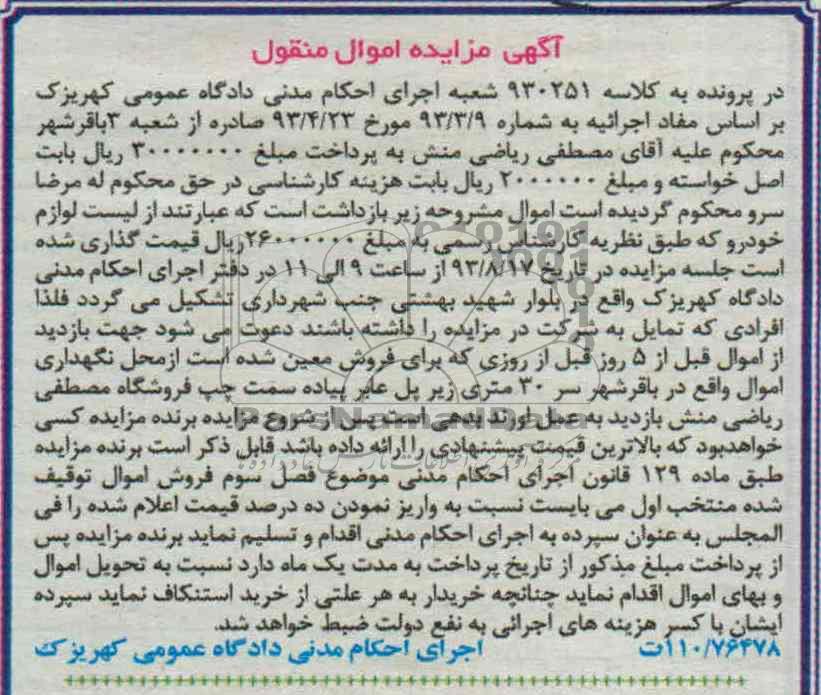 آگهی مزایده اموال منقول
در پرونده به کلاسه ۹۳۰۲۵۱ شعبه اجرای احکام مدنی دادگاه عمومی کهریزک
بر اساس مفاد اجرائیه به شماره ۹۳/۳/۹ مورخ ۹۳/۴/۲۳ صادره از شعبه ۳باقرشهر
محکوم علیه آقای مصطفی ریاضی منش به پرداخت مبلغ ۳۰۰۰۰۰۰۰ ریال بابت
اصل خواسته و مبلغ ۲۰۰۰۰۰۰ ریال بابت هزینه کارشناسی در حق محکوم له مرضا
سرو محکوم گردیده است اموال مشروحه زیر بازداشت است که عبارتند از لیست لوازم
خودرو که طبق نظریه کارشناس رسمی به مبلغ ۲۶۰۰۰۰۰۰ریال قیمت گذاری شده
است جلسه مزایده در تاریخ ۹۳/۸/۱۷ از ساعت ۹ الی ۱۱ در دفتر اجرای احکام مدنی
دادگاه کهریزک واقع در بلوار شهید بهشتی جنب شهرداری تشکیل می گردد فلذا
افرادی که تمایل به شرکت در مزایده را داشته باشند دعوت می شود جهت بازدید
از اموال قبل از ۵ روز قبل از روزی که برای فروش معین شده است ازمحل نگهداری
اموال واقع در باقرشهر سر ۳۰ متری زیر پل عابر پیاده سمت چپ فروشگاه مصطفی
ریاضی منش بازدید به عمل اورند بدهی است پس از شروع مزایده برنده مزایده کسی
خواهدبود که بالاترین قیمت پیشنهادی را ارائه داده باشد قابل ذکر است برنده مزایده
طبق ماده ۱۲۹ قانون اجرای احکام مدنی موضوع فصل سوم فروش اموال توقیف
شده منتخب اول می بایست نسبت به واریز نمودن ده درصد قیمت اعلام شده را فی
المجلس به عنوان سپرده به اجرای احکام مدنی اقدام و تسلیم نماید برنده مزایده پس
از پرداخت مبلغ مذکور از تاریخ پرداخت به مدت یک ماه دارد نسبت به تحویل اموال
و بهای اموال اقدام نماید چنانچه خریدار به هر علتی از خرید استنکاف نماید سپرده
ایشان با کسر هزینه های اجرائی به نفع دولت ضبط خواهد شد.
۱۱۰/۷۶۴۷۸ت اجرای احکام مدنی دادگاه عمومی کهریزک
ParsNamadData